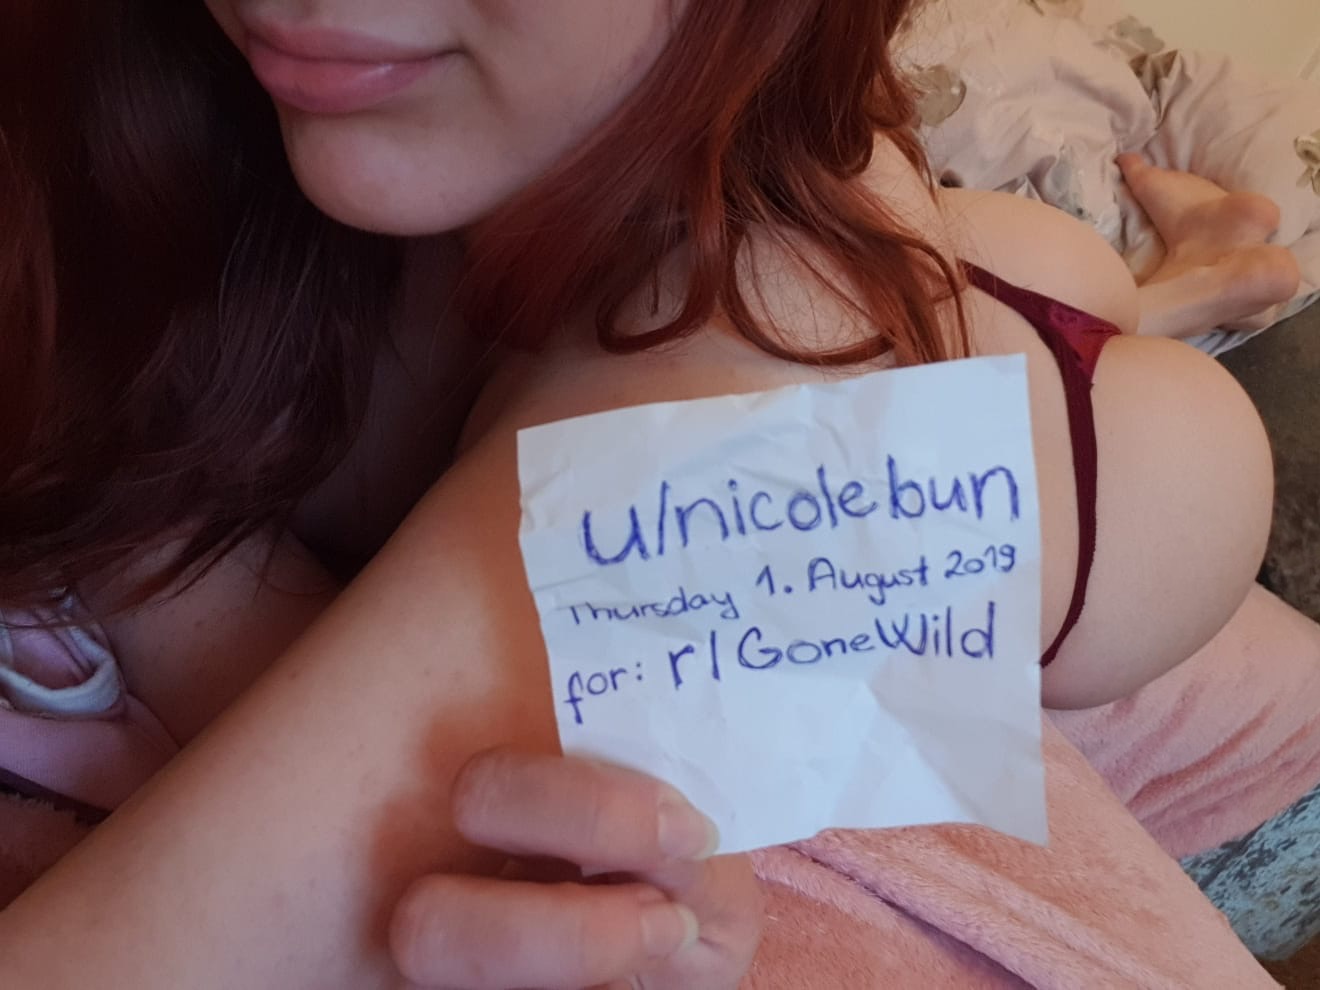 u/nicolebun
Thursday 1. August 2019
for: r/GoneWild